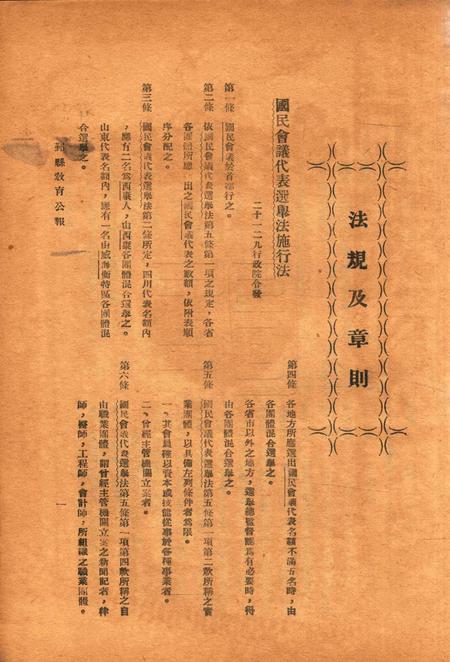 法規及章則
國民會議代表選舉法施行法
二十一二九行政院令發
第一條 國民會議於首都行之。
第二條 依國民會議代表選舉法第五條第一項之規定，各省
各團體所應出之國民會議代表之數額，依附表順
序分配之。
第三條 國民會議代表選舉法第二條所定，四川代表名額內
，應有二名為西康人，由西康各團體混合選舉之。
山東代表名額內，應有一名由威海衛特區各團體混
合選舉之。
第四條 各地方所應選出國民會議代表名額不滿五名時，由
各團體混合選舉之。
各省市以外之地方，選舉總監督認為有必要時，得
由各團體混合選舉之。
第五條 國民會議代表選舉法第五條第一項第二款所稱之實
業團體，以具備左列條件者為限。
一、其會員確以資本或技能從事於各種事業者。
二、曾經主管機關立案者。
第六條 國民會議代表選舉法第五條第一項第四款所稱之自
由職業團體，謂曾經主管機關立案之新聞記者，律
師，醫師，工程師，會計師，所組織之職業團體。
縣教育公報
一